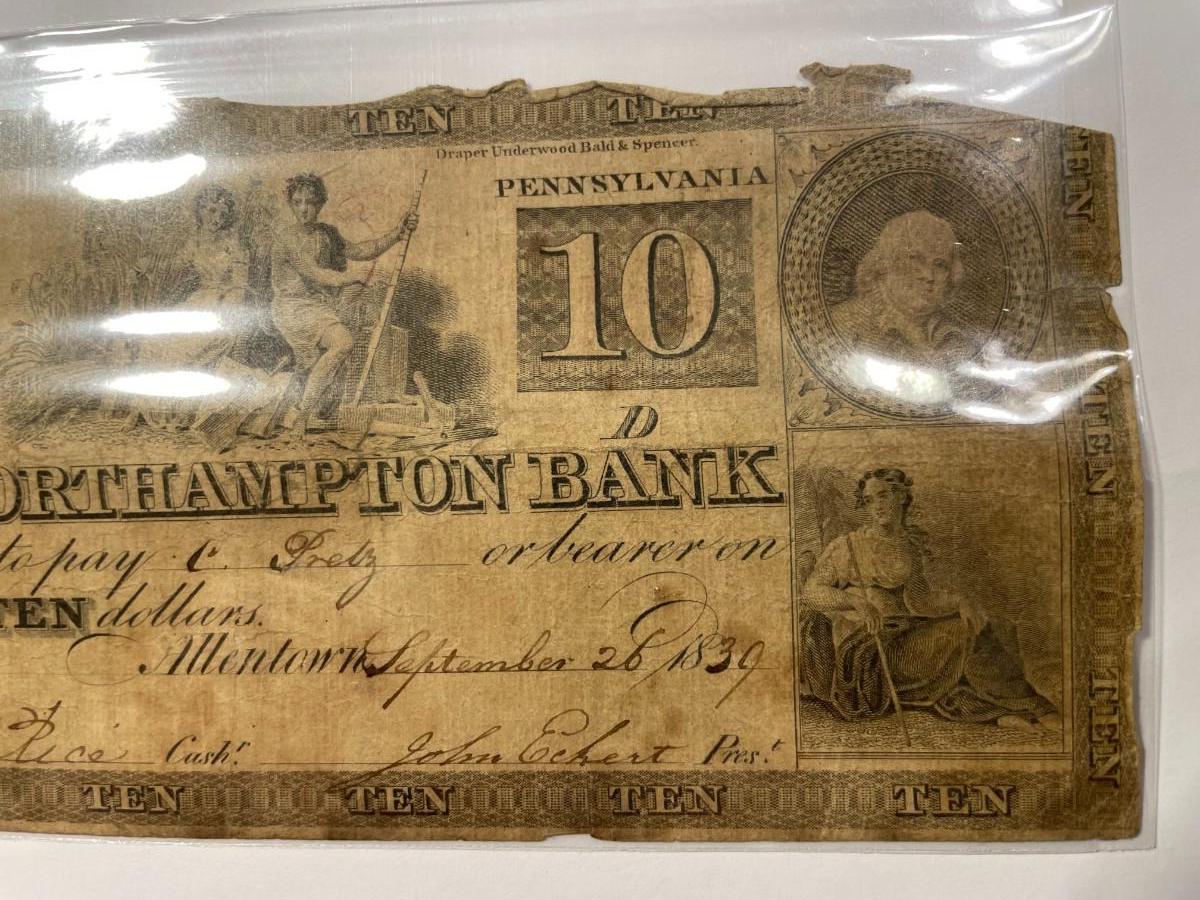 TEN TEN
Draper Underwood Bald & Spencer.
PENNSYLVANIA
10
D
ORTHAMPTON BANK
to pay C. Pretz or bearer on
TEN dollars.
Allentown September 26 1839
Rice Cashr. John Eckert Prest.
TEN TEN TEN TEN
TEN
TEN
TEN